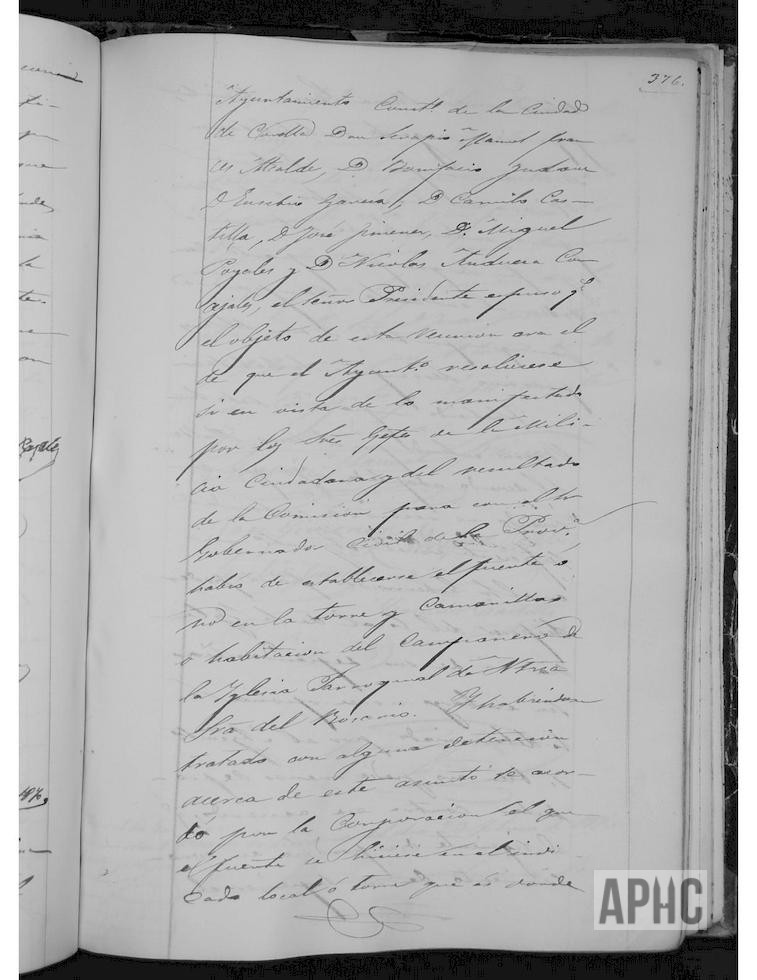 376.
Ayuntamiento Const.l de la Ciudad
de Corella Don Serapio Manuel Fran
ces Alcalde, D Bonifacio
D Eusebio Garcia, D Camilo Cas-
tilla, D José Jimenez, D. Miguel
Poyales y D Nicolas Andueza Con
cejales, el señor Presidente espuso q.e
el objeto de esta reunion era el
de que el Ayunt.o resolviese
si en vista de lo manifestado
por los Sres Gefes de la Mili-
cia Ciudadana y del resultado
de la Comision para con el Sr
Gobernador Civil de la Prov.a
habia de establecerse el fuerte ó
no en la torre y Camarillas
o habitacion del Campanero de
la Yglesia Parroquial de Ntra
Sra del Rosario. Y habiendose
tratado con alguna detencion
acerca de este asunto se acor-
dó por la Corporacion el que
el fuerte se hiciese en el indi
cado local ó torre que es donde
APHC